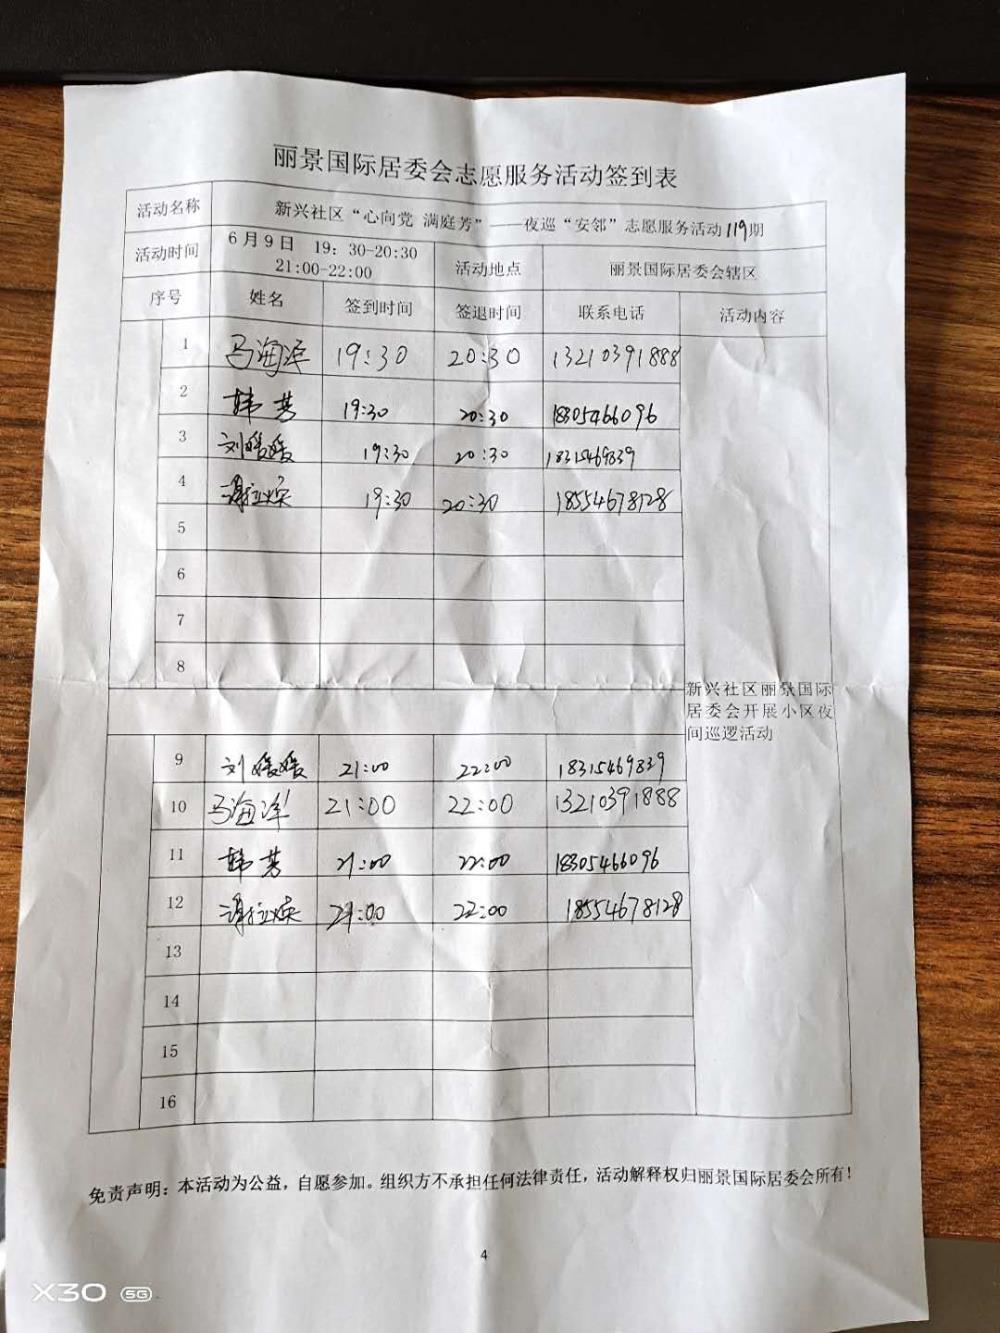 丽景国际居委会志愿服务活动签到表
活动名称 新兴社区“心向党 满庭芳”——夜巡“安邻”志愿服务活动119期
活动时间 6月9日 19：30-20:30 21:00-22:00 活动地点 丽景国际居委会辖区
序号 姓名 签到时间 签退时间 联系电话 活动内容
1 马海洋 19:30 20:30 13210391888
2 韩芳 19:30 20:30 18305466096
3 刘媛媛 19:30 20:30 18315469839
4 19:30 20:30 18554678128
5
6
7
8
新兴社区丽景国际
居委会开展小区夜
间巡逻活动
9 刘媛媛 21:00 22:00 18315469839
10 马海洋 21:00 22:00 13210391888
11 韩芳 21:00 22:00 18305466096
12 21:00 22:00 18554678128
13
14
15
16
免责声明：本活动为公益，自愿参加。组织方不承担任何法律责任，活动解释权归丽景国际居委会所有！
4
X30 5G